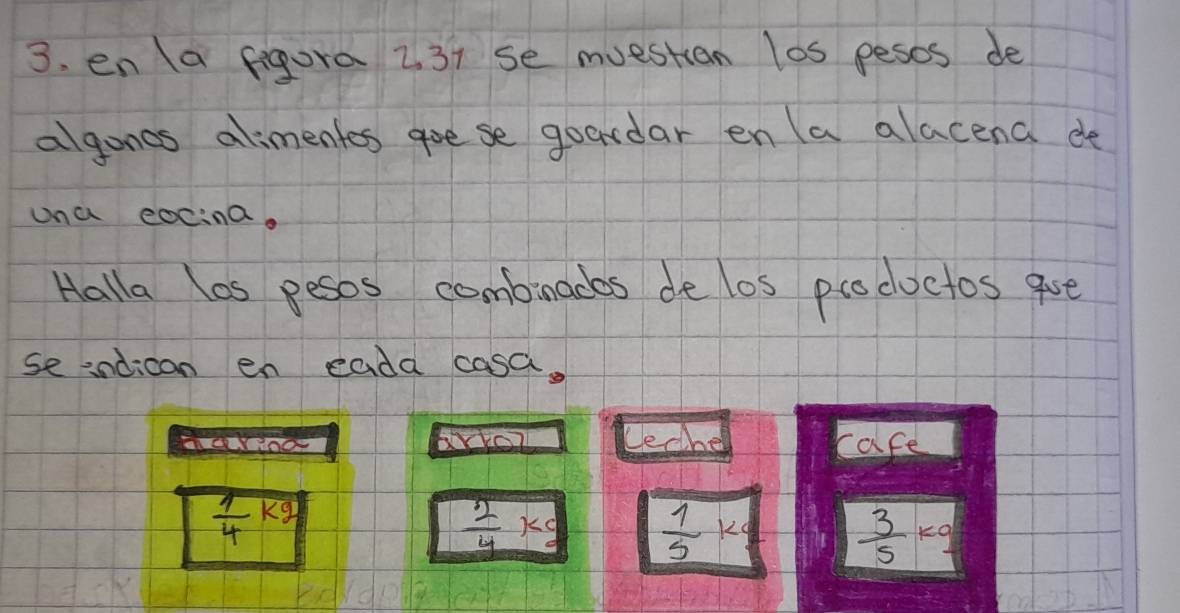 3. en la figura 2.31 se muestran los pesos de
algonos alimentos que se goardar en la alacena de
una cocina.
Halla los pesos combinados de los productos que
se indican en cada casa.
harina arroz Leche Cafe
1/4 kg 2/4 kg 1/5 kg 3/5 kg